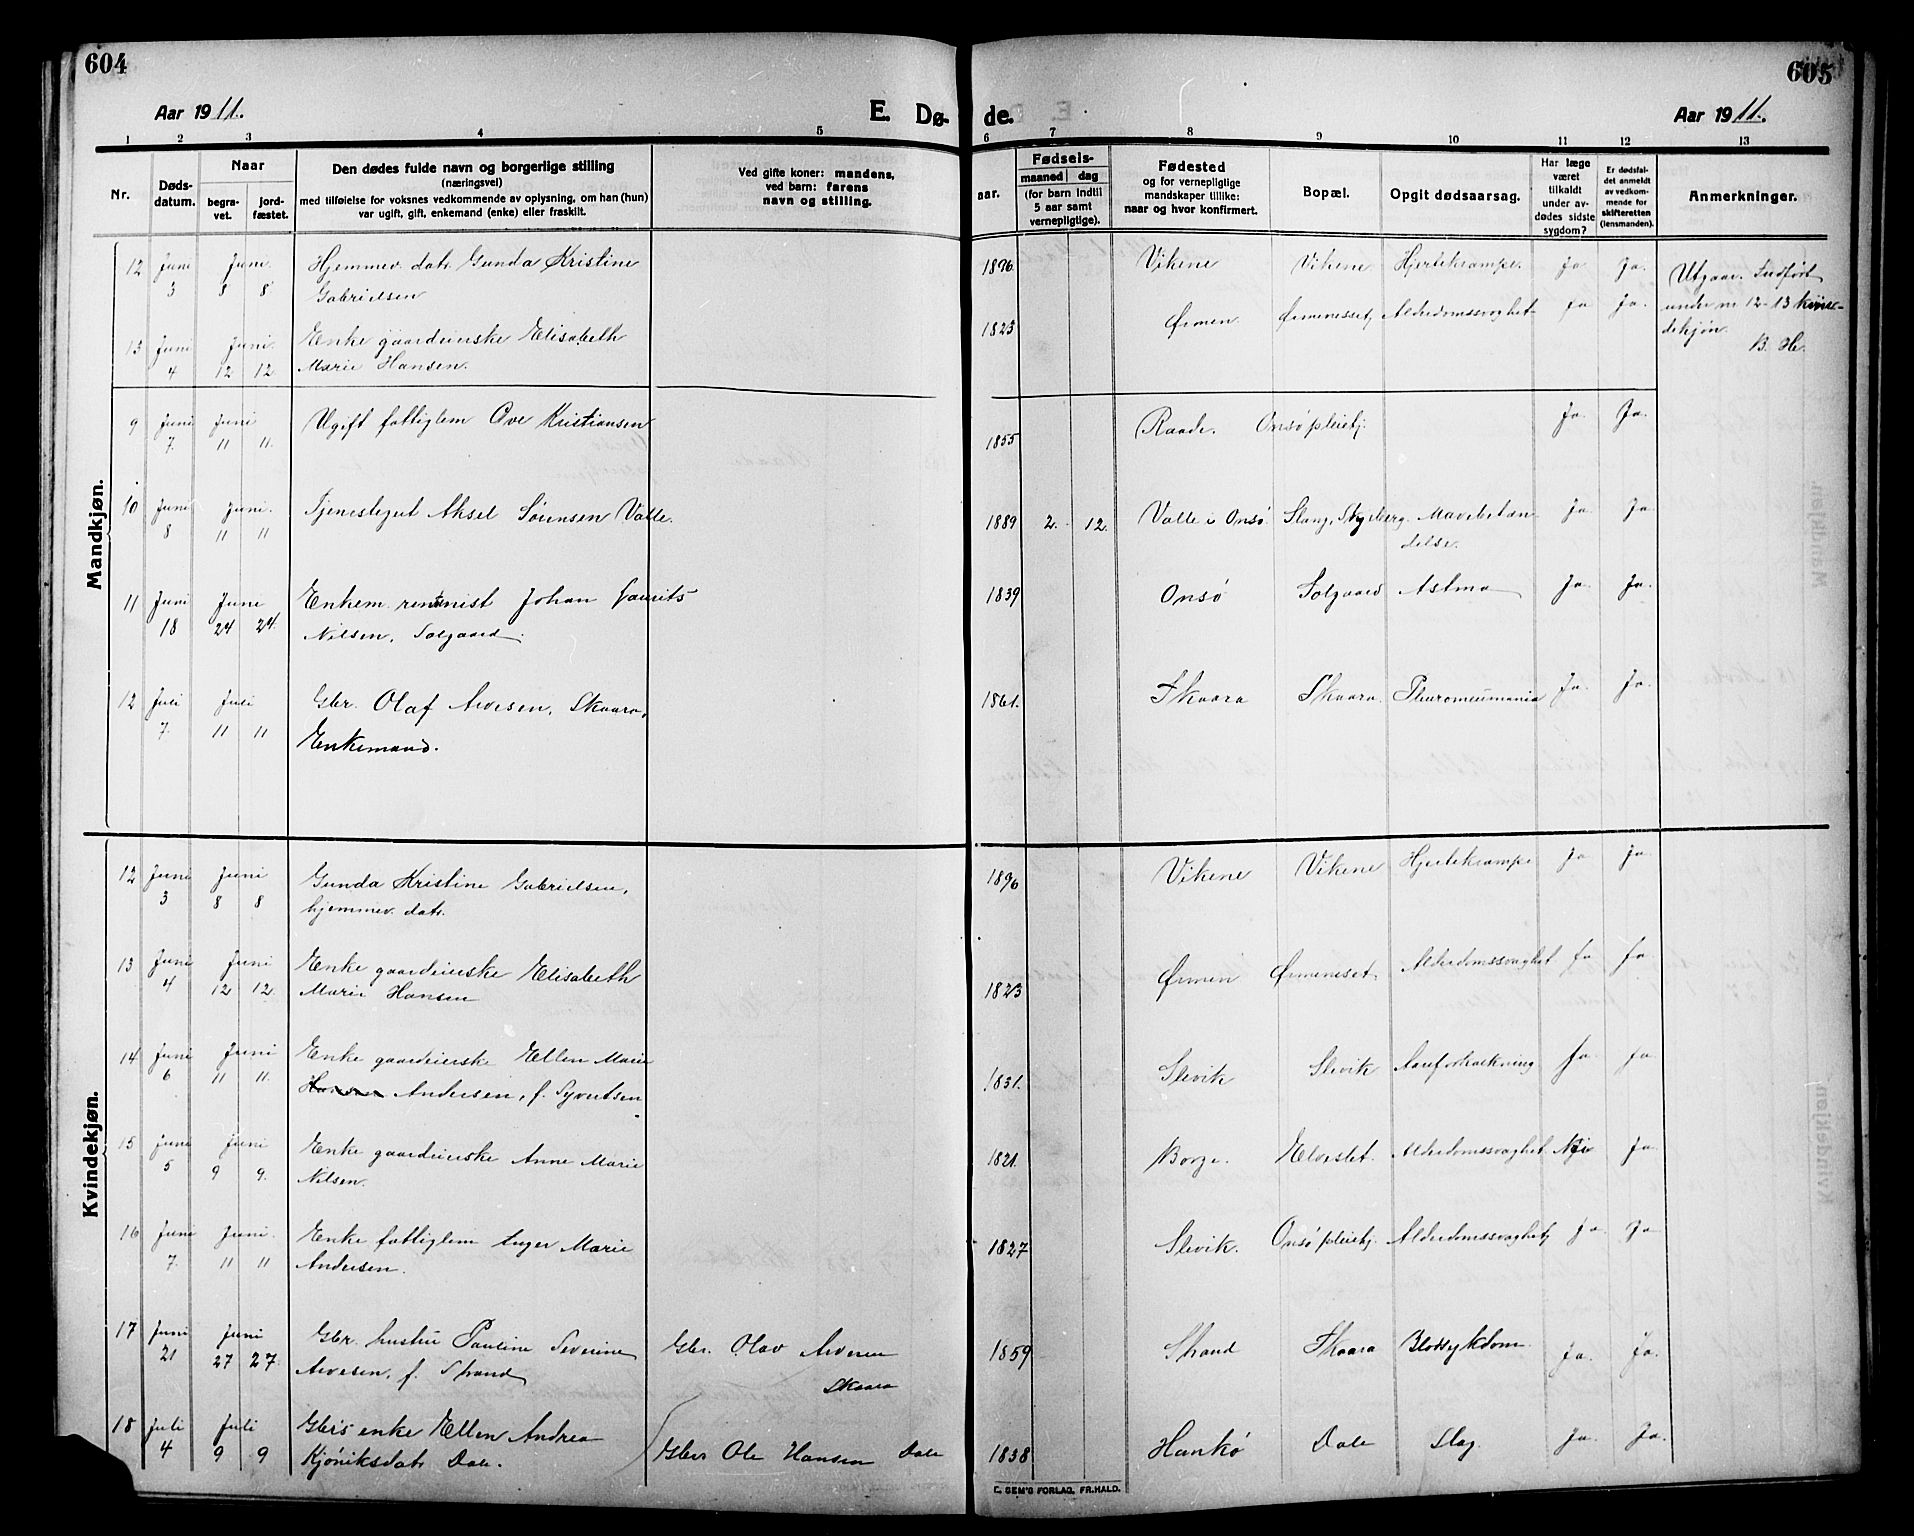 604
605
Aar 1911.
E. Dø-
de.
Aar 1911.
1 2 3 4 5 6 7 8 9 10 11 12 13
Nr.
Døds-
datum.
Naar
begra-
vet.
jord-
fæstet.
Den dødes fulde navn og borgerlige stilling
(næringsvei)
med tilføielse for voksnes vedkommende av oplysning, om han (hun)
var ugift, gift, enkemand (enke) eller fraskilt.
Ved gifte koner: mandens,
ved barn: farens
navn og stilling.
aar.
Fødsels-
maaned dag
(for barn indtil
5 aar samt
vernepligtige).
Fødested
og for vernepligtige
mandskaper tillike:
naar og hvor konfirmert.
Bopæl.
Opgit dødsaarsag.
Har læge
været
tilkaldt
under av-
dødes sidste
sygdom?
Er dødsfal-
det anmeldt
av vedkom-
mende for
skifteretten
(lensmanden).
Anmerkninger.
12 Juni Juni. Hjemmev. datr. Gunda Kristine 1896. Vikene Vikene Hjertekrampe. Ja Ja.
3 8 8 Gabrielsen
Utgaar. Indført
under nr 12-13 kvin-
dekjøn.
B. He.
13 Juni Juni. Enke gaardeierske Elisabeth 1823 Ørmen. Ørmeneset, Alderdomssvaghet Ja Ja.
4 12 12. Marie Hansen.
Mandkjøn.
9 Juni Juni Ugift fattiglem Ove Kristiansen 1855 Raade. Onsø pleiehj. Ja. Ja.
7. 11 11.
10 Juni Juni. Tjenestegut Aksel Sørensen Valle. 1889 2. 12. Valle i Onsø. Slang, Skjeberg. Mavebetæn- Ja. Ja.
8 11 11 delse.
11 Juni June Enkem. rentenist Johan Laurits 1839 Onsø Solgaard Astma Ja. Ja.
18 24 24. Nilsen, Solgaard.
12 Juli Juli Gbr. Olaf Arvesen, Skaara, 1861. Skaara Skaara. Pleuromeumania Ja. Ja.
7. 11 11 Enkemand.
Kvindekjøn.
12 Juni Juni Gunda Kristine Gabrielsen, 1896 Vikene Vikene Hjertekrampe Ja Ja.
3 8 8 hjemmev. datr.
13 Juni Juni Enke gaardeierske Elisabeth 1823 Ørmen Ørmeneset. Alderdomssvaghet Ja Ja.
4 12 12. Marie Hansen
14 Juni Juni Enke gaardeierske Ellen Marie 1831. Slevik Slevik Aareforkalkning Ja. Ja
6 11 11. Hansen Andersen, f. Syvertsen
15 Juni Juni Enke gaardeierske Anne Marie 1821. Borge. Elveslet. Alderdomssvaghet. Nei Ja.
5 9 9. Nilsen.
16 Juni Juni. Enke fattiglem Inger Marie 1827 Slevik. Onsø pleiehj. Alderdomssvaghet, Ja. Ja
7. 11 11 Andersen.
17 Juni Juni Gbr. hustru Pauline Severine Gbr. Olav Arvesen 1859 Strand Skaara Blodsykdom Ja. Ja.
21 27 27. Arvesen, f. Strand Skaara
18 Juli Juli Gbr's enke Ellen Andrea
4 9 9 Kjøniksdatr Dale. Gbr Ole Hansen Dale 1838 Hankø Dale Slag. Ja. Ja.
E. SEM'S FORLAG, FR.HALD.